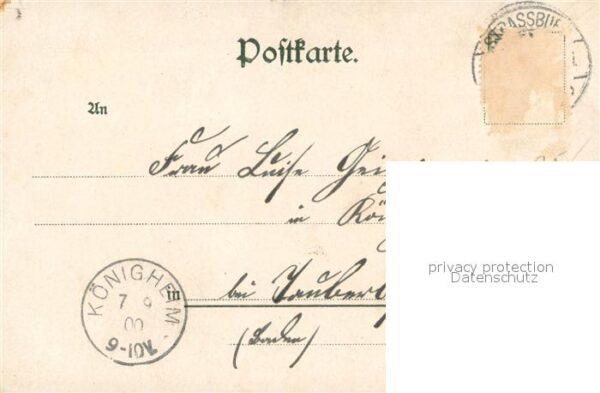 STRASSBU
Postkarte.
An
Frau Luise Gei
in Kö
bei Tauberb
(Baden)
KÖNIGHEIM
7 9
00
9-10V.
privacy protection
Datenschutz